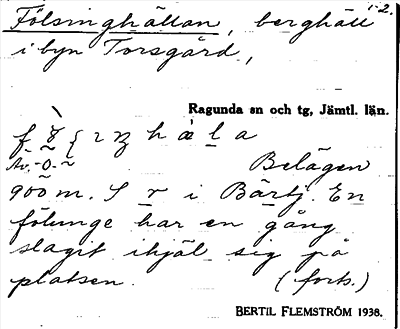 1-2.
Fölsinghällan, berghäll
i byn Torsgård.,
Ragunda sn och tg, Jämtl. län.
Av. -o-
Belägen
900 m. S r i Bärtj. En
fölunge har en gång
slagit ihjäl sig på
platsen. (forts.)
BERTIL FLEMSTRÖM 1938.